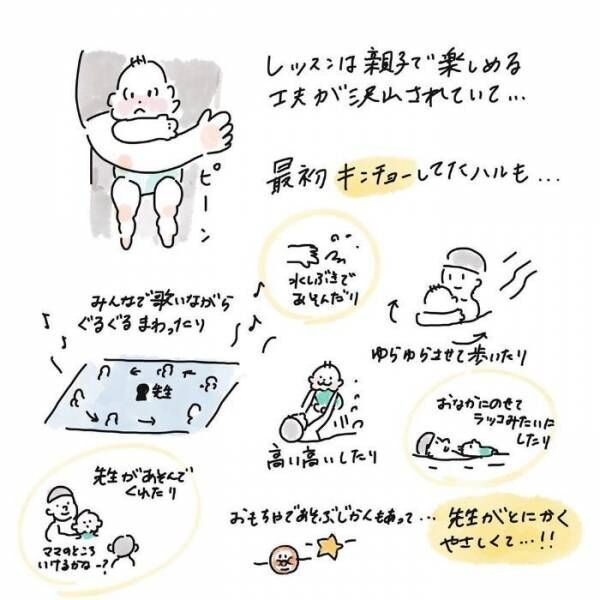 レッスンは親子で楽しめる
工夫が沢山されていて…
ピーン
最初キンチョーしてたハルも…
水しぶきで
あそんだり
みんなで歌いながら
ぐるぐるまわったり
先生
ゆらゆらさせて歩いたり
高い高いしたり
おなかにのせて
ラッコみたいに
したり
先生があそんで
くれたり
ママのところ
いけるかなー?
おもちゃであそぶじかんもあって…
先生がとにかく
やさしくて…!!